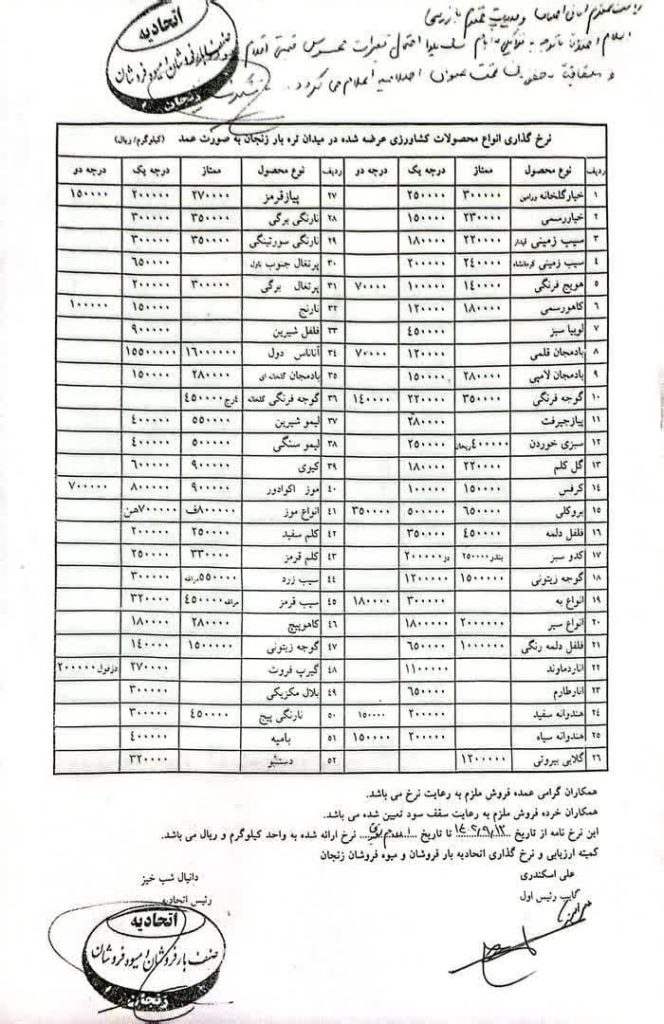 اتحادیه
صنف بارفروشان و میوه فروشان
زنجان
نرخ گذاری انواع محصولات کشاورزی عرضه شده در میدان تره بار زنجان به صورت عمد (کیلوگرم/ ریال)
ردیف نوع محصول ممتاز درجه یک درجه دو ردیف نوع محصول ممتاز درجه یک درجه دو
۱ خیارگلخانه ورامین ۳۰۰۰۰۰ ۲۵۰۰۰۰ ۲۷ پیازقرمز ۲۷۰۰۰۰ ۲۰۰۰۰۰ ۱۵۰۰۰۰
۲ خیاررسمی ۲۳۰۰۰۰ ۱۵۰۰۰۰ ۲۸ نارنگی برگی ۳۵۰۰۰۰ ۳۰۰۰۰۰
۳ سیب زمینی ۲۲۰۰۰۰ ۱۸۰۰۰۰ ۲۹ نارنگی سورتینگی ۳۵۰۰۰۰ ۳۰۰۰۰۰
۴ سیب زمینی کرمانشاه ۲۴۰۰۰۰ ۲۰۰۰۰۰ ۳۰ پرتغال جنوب ناول ۶۵۰۰۰۰
۵ هویج فرنگی ۱۴۰۰۰۰ ۱۰۰۰۰۰ ۷۰۰۰۰ ۳۱ پرتغال برگی ۳۰۰۰۰۰ ۲۰۰۰۰۰
۶ کاهورسمی ۱۸۰۰۰۰ ۱۲۰۰۰۰ ۳۲ نارنج ۱۵۰۰۰۰ ۱۰۰۰۰۰
۷ لوبیا سبز ۴۵۰۰۰۰ ۳۳ فلفل شیرین ۹۰۰۰۰۰
۸ بادمجان قلمی ۱۲۰۰۰۰ ۷۰۰۰۰ ۳۴ آناناس دول ۱۶۰۰۰۰۰۰ ۱۵۵۰۰۰۰۰
۹ بادمجان لامپی ۲۸۰۰۰۰ ۱۵۰۰۰۰ ۳۵ بادمجان گلخانه ای ۲۸۰۰۰۰ ۱۵۰۰۰۰
۱۰ گوجه فرنگی ۳۵۰۰۰۰ ۲۲۰۰۰۰ ۱۴۰۰۰۰ ۳۶ گوجه فرنگی گلخانه ۴۵۰۰۰۰
۱۱ پیازجیرفت ۲۸۰۰۰۰ ۳۷ لیمو شیرین ۵۵۰۰۰۰ ۴۰۰۰۰۰
۱۲ سبزی خوردن ۴۰۰۰۰۰ریحان ۲۵۰۰۰۰ ۳۸ لیمو سنگی ۵۰۰۰۰۰ ۴۰۰۰۰۰
۱۳ گل کلم ۲۲۰۰۰۰ ۱۸۰۰۰۰ ۳۹ کیوی ۹۰۰۰۰۰ ۶۰۰۰۰۰
۱۴ کرفس ۱۵۰۰۰۰ ۱۰۰۰۰۰ ۴۰ موز اکوادور ۹۰۰۰۰۰ ۸۰۰۰۰۰ ۷۰۰۰۰۰
۱۵ بروکلی ۶۵۰۰۰۰ ۵۰۰۰۰۰ ۳۵۰۰۰۰ ۴۱ انواع موز ۸۰۰۰۰۰ف ۷۰۰۰۰۰هن
۱۶ فلفل دلمه ۴۵۰۰۰۰ ۳۵۰۰۰۰ ۴۲ کلم سفید ۲۵۰۰۰۰ ۲۰۰۰۰۰
۱۷ کدو سبز بندر ۲۵۰۰۰۰ دز ۲۰۰۰۰۰ ۴۳ کلم قرمز ۳۳۰۰۰۰ ۲۵۰۰۰۰
۱۸ گوجه زیتونی ۱۵۰۰۰۰۰ ۱۲۰۰۰۰۰ ۴۴ سیب زرد ۵۵۰۰۰۰مراغه ۳۰۰۰۰۰
۱۹ انواع به ۳۰۰۰۰۰ ۱۸۰۰۰۰ ۴۵ سیب قرمز مراغه ۴۵۰۰۰۰ ۳۲۰۰۰۰
۲۰ انواع سیر ۲۰۰۰۰۰۰ ۱۸۰۰۰۰۰ ۴۶ کاهوپیچ ۲۸۰۰۰۰ ۱۸۰۰۰۰
۲۱ فلفل دلمه رنگی ۱۰۰۰۰۰۰ ۶۵۰۰۰۰ ۴۷ گوجه زیتونی ۱۵۰۰۰۰۰ ۱۴۰۰۰۰
۲۲ اناردماوند ۱۱۰۰۰۰۰ ۴۸ گیرپ فروت ۲۷۰۰۰۰ دزفول ۲۰۰۰۰۰
۲۳ انارطارم ۶۵۰۰۰۰ ۴۹ بلال مکزیکی ۳۰۰۰۰۰
۲۴ هندوانه سفید ۲۰۰۰۰۰ ۱۵۰۰۰۰ ۵۰ نارنگی پیج ۴۵۰۰۰۰ ۳۰۰۰۰۰
۲۵ هندوانه سیاه ۲۰۰۰۰۰ ۱۵۰۰۰۰ ۵۱ بامیه ۴۰۰۰۰۰
۲۶ گلابی بیروتی ۱۲۰۰۰۰۰ ۵۲ دستنبو ۳۲۰۰۰۰
همکاران گرامی عمده فروش ملزم به رعایت نرخ می باشد.
همکاران خرده فروش ملزم به رعایت سقف سود تعیین شده می باشد.
این نرخ نامه از تاریخ ۱۴۰۲/۹/۱۲ تا تاریخ نرخ ارائه شده به واحد کیلوگرم و ریال می باشد.
کمیته ارزیابی و نرخ گذاری اتحادیه بار فروشان و میوه فروشان زنجان
علی اسکندری
نایب رئیس اول
دانیال شب خیز
رئیس اتحادیه
اتحادیه
صنف بارفروشان و میوه فروشان
زنجان